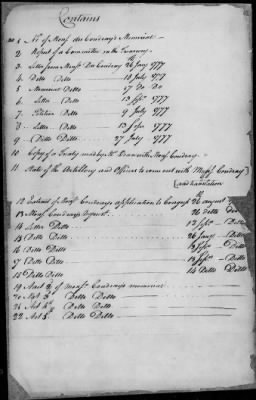 Contains
No 1 No 1 of Monsr du Coudray's Memoir
2 Report of a Committee on the Treasury
3 Letter from Monsr Du Coudray 26 July 1777
4 Ditto Ditto 10 July 1777
5 Memoir Ditto 17 Do Do
6 Letter Ditto 13 Sepr 1777
7 Petition Ditto 9 July 1777
8 Letter Ditto 13 Sepr 1777
9 Ditto Ditto 27 July 1777
10 Copy of a Treaty made by Mr Deane with Monsr Coudray
11 State of the Artillery and Officers to come out with Monsr Coudray
and translation
12 Extract of Monsr Coudray's application to Congress 26 august
13 Monsr Coudray's 26 ditto
14 Letter Ditto 12 Sepr Ditto
15 Ditto Ditto 26 Ditto
16 Ditto Ditto 13 Sepr Ditto
17 Ditto Ditto 13 Sepr Ditto
18 Ditto Ditto 14 Ditto Ditto
19 of Monsr Coudray's memoir
20 Ditto Ditto
21 Ditto Ditto
22 Ditto Ditto